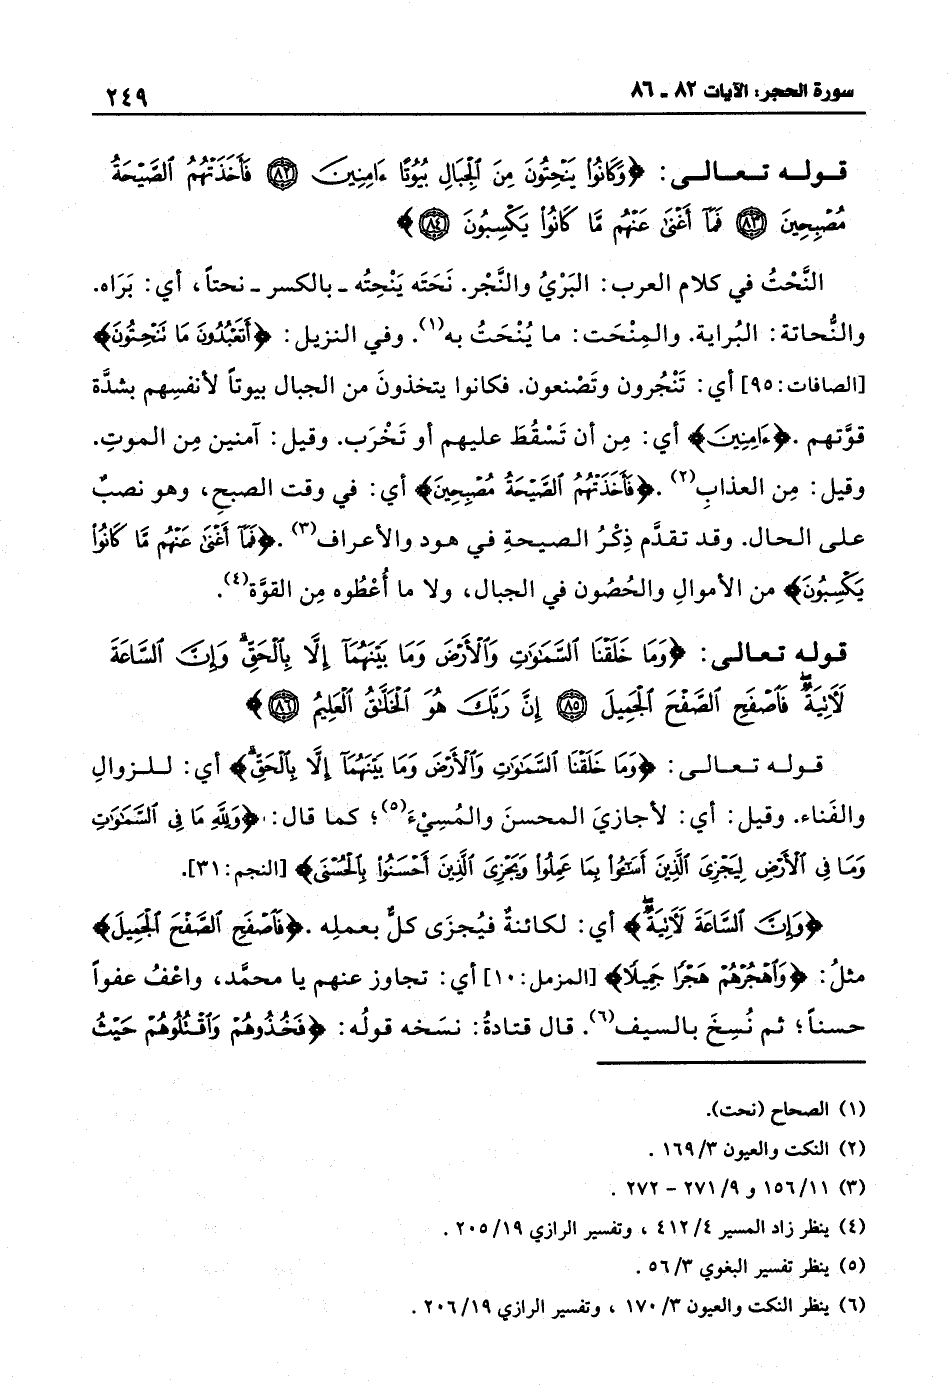 سورة الحجر: الآيات ٨٢ ـ ٨٦
٢٤٩
قـولـه تـعـالـى: ﴿وَكَانُوا۟ يَنْحِتُونَ مِنَ ٱلْجِبَالِ بُيُوتًا ءَامِنِينَ ۝٨٢ فَأَخَذَتْهُمُ ٱلصَّيْحَةُ
مُصْبِحِينَ ۝٨٣ فَمَآ أَغْنَىٰ عَنْهُم مَّا كَانُوا۟ يَكْسِبُونَ ۝٨٤﴾
النَّحْتُ في كلام العرب: البَرْيُ والنَّجْر. نَحَتَه يَنْحِتُه ـ بالكسر ـ نحتاً، أي: بَرَاه.
والنُّحاتة: البُراية. والمِنْحَت: ما يُنْحَتُ به(١). وفي النزيل: ﴿أَتَعْبُدُونَ مَا نَنْحِتُونَ﴾
[الصافات: ٩٥] أي: تَنْجُرون وتَصْنعون. فكانوا يتخذونَ من الجبال بيوتاً لأنفسِهم بشدَّة
قوَّتهم. ﴿ءَامِنِينَ﴾ أي: مِن أن تَسْقُطَ عليهم أو تَخْرَب. وقيل: آمنين مِن الموتِ.
وقيل: مِن العذابِ(٢). ﴿فَأَخَذَتْهُمُ ٱلصَّيْحَةُ مُصْبِحِينَ﴾ أي: في وقت الصبحِ، وهو نصبٌ
على الحال. وقد تقدَّم ذِكْرُ الصيحةِ في هود والأعراف(٣). ﴿فَمَآ أَغْنَىٰ عَنْهُم مَّا كَانُوا۟
يَكْسِبُونَ﴾ من الأموالِ والحُصُون في الجبال، ولا ما أُعْطُوه مِن القوَّة(٤).
قوله تعالى: ﴿وَمَا خَلَقْنَا ٱلسَّمَـٰوَٰتِ وَٱلْأَرْضَ وَمَا بَيْنَهُمَآ إِلَّا بِٱلْحَقِّ ۗ وَإِنَّ ٱلسَّاعَةَ
لَـَٔاتِيَةٌ ۖ فَٱصْفَحِ ٱلصَّفْحَ ٱلْجَمِيلَ ۝٨٥ إِنَّ رَبَّكَ هُوَ ٱلْخَلَّـٰقُ ٱلْعَلِيمُ ۝٨٦﴾
قـولـه تـعـالـى: ﴿وَمَا خَلَقْنَا ٱلسَّمَـٰوَٰتِ وَٱلْأَرْضَ وَمَا بَيْنَهُمَآ إِلَّا بِٱلْحَقِّ ۗ﴾ أي: لـلـزوالِ
والفَناء. وقيل: أي: لأجازيَ المحسنَ والمُسِيْءَ(٥)؛ كما قال: ﴿وَلِلَّهِ مَا فِى ٱلسَّمَـٰوَٰتِ
وَمَا فِى ٱلْأَرْضِ لِيَجْزِىَ ٱلَّذِينَ أَسَـٰٓـُٔوا۟ بِمَا عَمِلُوا۟ وَيَجْزِىَ ٱلَّذِينَ أَحْسَنُوا۟ بِٱلْحُسْنَى﴾ [النجم: ٣١].
﴿وَإِنَّ ٱلسَّاعَةَ لَـَٔاتِيَةٌ ۖ﴾ أي: لكائنةٌ فيُجزَى كلٌّ بعملِه. ﴿فَٱصْفَحِ ٱلصَّفْحَ ٱلْجَمِيلَ﴾
مثلُ: ﴿وَٱهْجُرْهُمْ هَجْرًا جَمِيلًا﴾ [المزمل: ١٠] أي: تجاوز عنهم يا محمَّد، واعْفُ عفواً
حسناً؛ ثم نُسِخَ بالسيف(٦). قال قتادةُ: نسَخه قولُه: ﴿فَخُذُوهُمْ وَٱقْتُلُوهُمْ حَيْثُ
(١) الصحاح (نحت).
(٢) النكت والعيون ٣/ ١٦٩ .
(٣) ١١/ ١٥٦ و ٩/ ٢٧١ – ٢٧٢ .
(٤) ينظر زاد المسير ٤/ ٤١٢ ، وتفسير الرازي ١٩/ ٢٠٥ .
(٥) ينظر تفسير البغوي ٣/ ٥٦ .
(٦) ينظر النكت والعيون ٣/ ١٧٠ ، وتفسير الرازي ١٩/ ٢٠٦ .